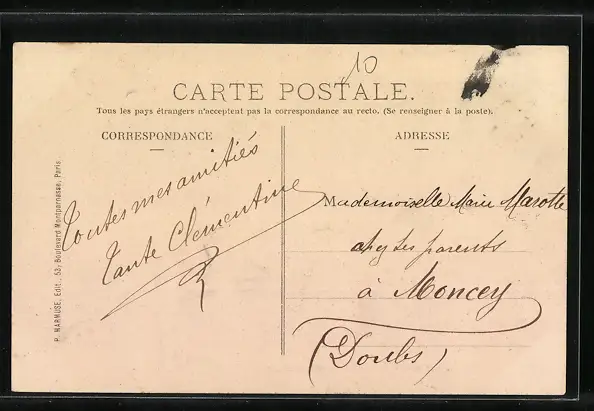 10
CARTE POSTALE.
Tous les pays étrangers n'acceptent pas la correspondance au recto. (Se renseigner à la poste).
CORRESPONDANCE
ADRESSE
Toutes mes amitiés
Tante Clémentine
Mademoiselle Marie Marotte
chez ses parents
à Moncey
(Doubs)
P. MARMUSE, Edit., 53, Boulevard Montparnasse, Paris